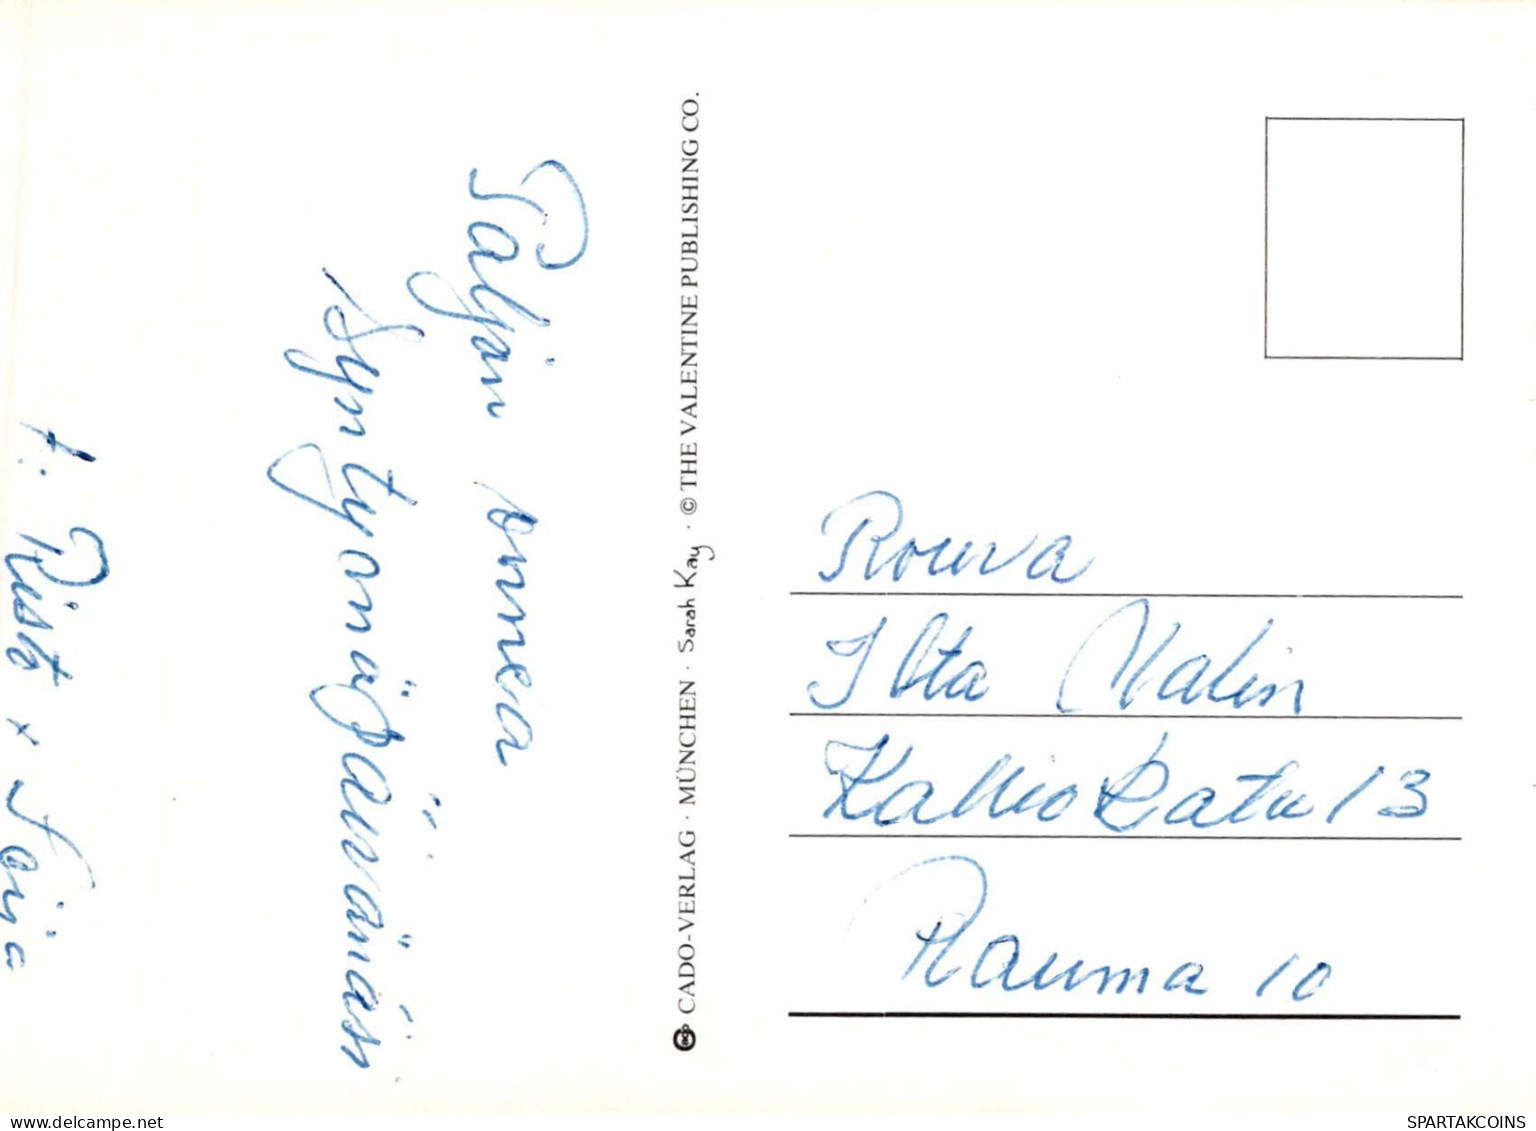 Paljon onnea
Syntymäpäivänäsi
t: Risto + Soija
© CADO-VERLAG · MÜNCHEN · Sarah Kay · © THE VALENTINE PUBLISHING CO.
Rouva
Ilta Valin
Kalliokatu 13
Rauma 10
delcampe.net
SPARTAKCOINS